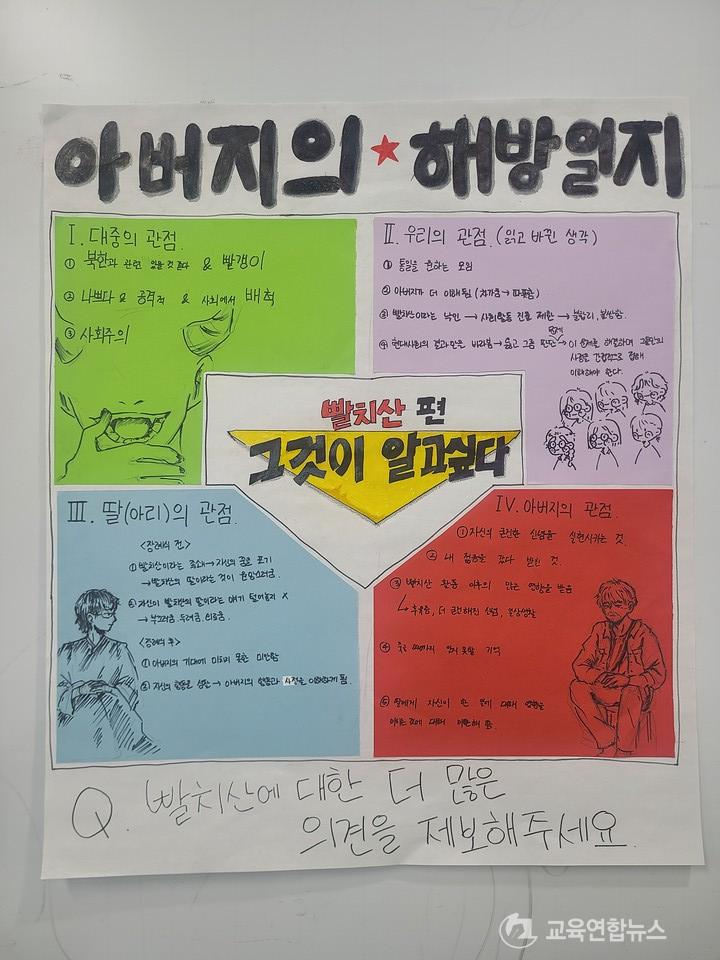 아버지의 ★ 해방일지
I. 대중의 관점.
① 북한과 관련 있을 것 같다 & 빨갱이
② 나쁘다 & 공격적 & 사회에서 배척
③ 사회주의
II. 우리의 관점. (읽고 바뀐 생각)
① 통일을 원하는 모임
② 아버지가 더 이해됨 (차가움→따뜻함)
③ 빨치산이라는 낙인 → 사회활동 진출 제한 → 불합리, 불쌍함.
④ 현대사회의 결과만은 바라봄 → 옳고 그름 판단 → 이 문제를 해결하며 그들만의
사정은 간접적으로 접해
이해해야 한다.
빨치산 편
그것이 알고싶다
III. 딸(아리)의 관점.
<장례식 전>
① 빨치산이라는 족쇄 → 자신의 꿈을 포기
→ 빨치산의 딸이라는 것이 원망스러움.
② 자신이 빨치산의 딸이라는 얘기 털어놓지 X
→ 부끄러움, 두려움, 외로움.
<장례식 후>
① 아버지의 기대에 미치지 못한 미안함
② 자신의 행동을 성찰 → 아버지의 행동과 사정을 이해하게 됨.
IV. 아버지의 관점.
① 자신의 굳건한 신념을 실현시키는 것.
② 내 젊음을 갖다 바친 것.
③ 빨치산 활동 이후의 많은 영향을 받음
↳ 후유증, 더 굳건해진 신념, 옥살이
④ 죽을 때까지 잊지 못할 기억
⑤ 딸에게 자신이 한 일에 대해 영향을
미치는 것에 대해 미안해 함.
Q. 빨치산에 대한 더 많은
의견을 제보해주세요.
교육연합뉴스